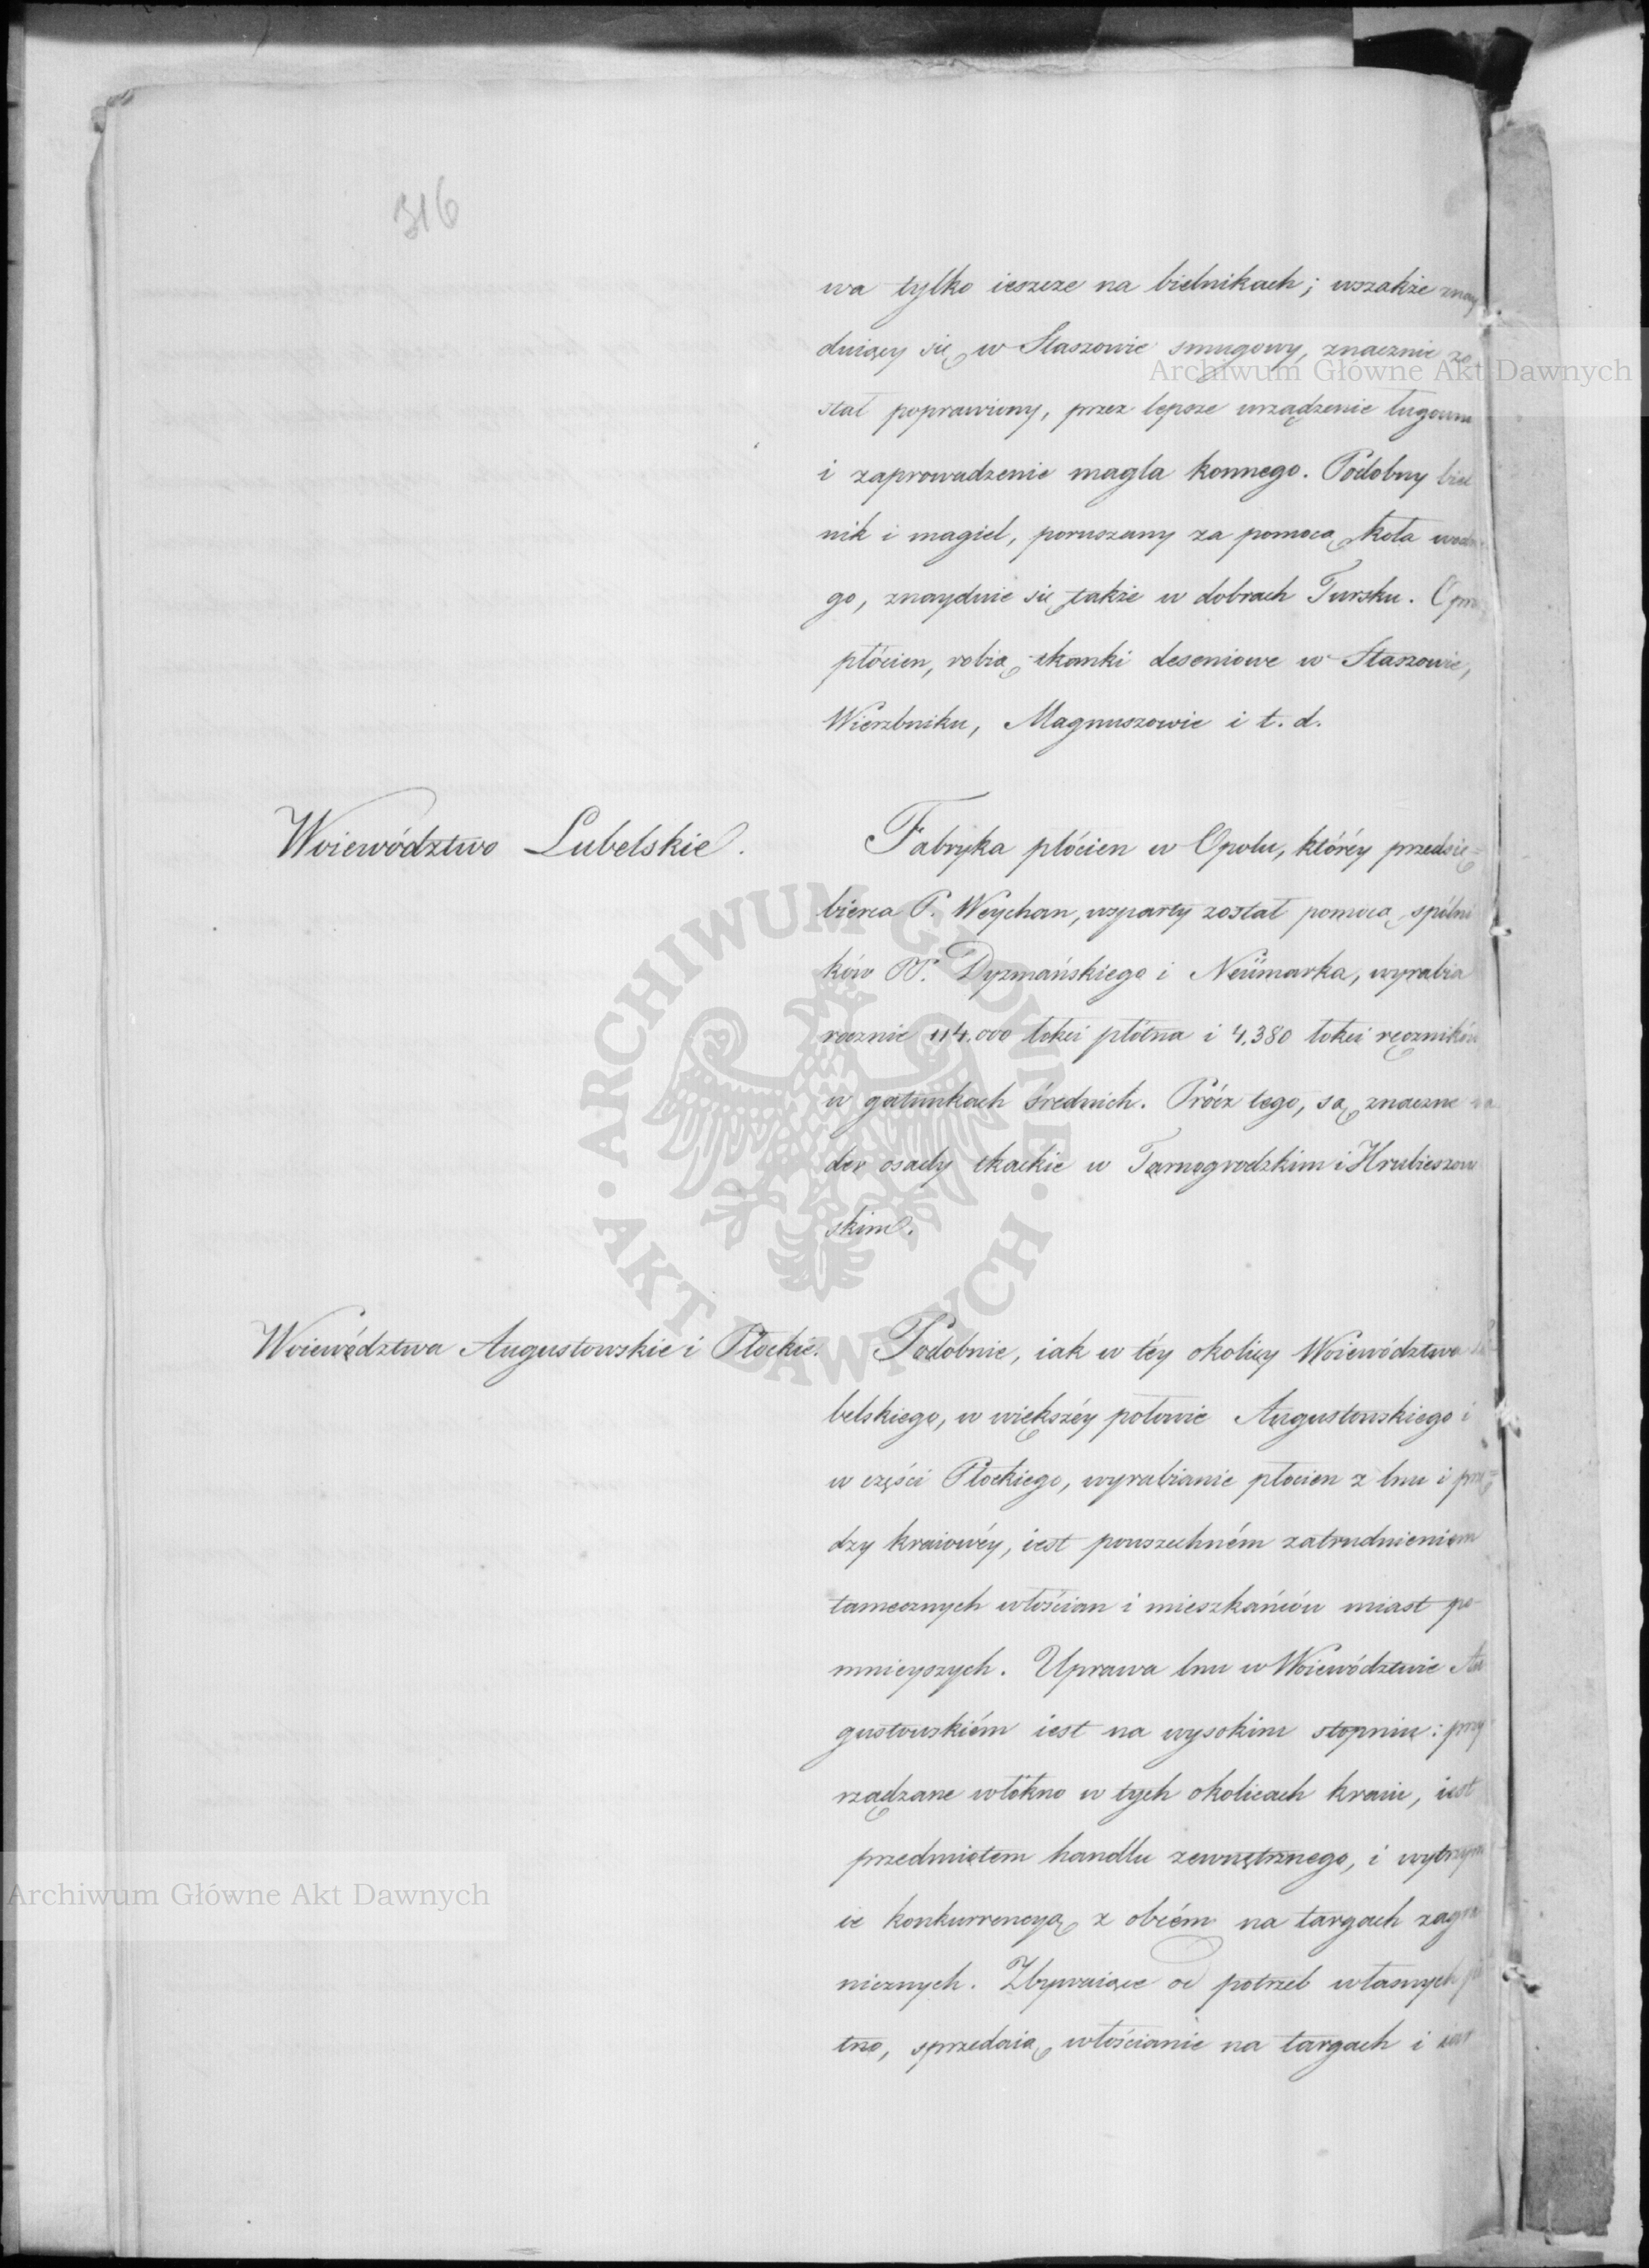 316
wa tylko ieszcze na bielnikach; wszakże znay
duiący się w Staszowie smugowy, znacznie zo
stał poprawiony, przez lepsze urządzenie ługowni
i zaprowadzenie magla konnego. Podobny biel
nik i magiel, poruszany za pomocą koła wodne
go, znayduie się także w dobrach Tursku. Oprócz
płócien, robią tkanki deseniowe w Staszowie,
Wierzbniku, Magnuszowie i t. d.
Woiewództwo Lubelskie.
Fabryka płócien w Opolu, któréy przedsię=
bierca P. Weychan, wsparty został pomocą spólni
ków PP. Dyzmańskiego i Neümarka, wyrabia
rocznie 114,000 łokci płótna i 4,380 łokci ręczników
w gatunkach średnich. Prócz tego, są znaczne na
der osady tkackie w Tarnogrodzkim i Hrubieszow
skim.
Woiewództwa Augustowskie i Płockie.
Podobnie, iak w téy okolicy Woiewództwa Lu
belskiego, w większéy połowie Augustowskiego i
w części Płockiego, wyrabianie płocien z lnu i przę=
dzy kraiowéy, iest powszechném zatrudnieniem
tamecznych włościan i mieszkańców miast po-
mnieyszych. Uprawa lnu w Woiewództwie Au
gustowskiém iest na wysokim stopniu: przy
rządzane włókno w tych okolicach kraiu, iest
przedmiotem handlu zewnętrznego, i wytrzymu
ie konkurrencyą z obcém na targach zagra
nicznych. Zbywaiące od potrzeb własnych pł
tno, sprzedaią włościanie na targach i iar
Archiwum Główne Akt Dawnych
ARCHIWUM GŁÓWNE · AKT DAWNYCH ·
Archiwum Główne Akt Dawnych